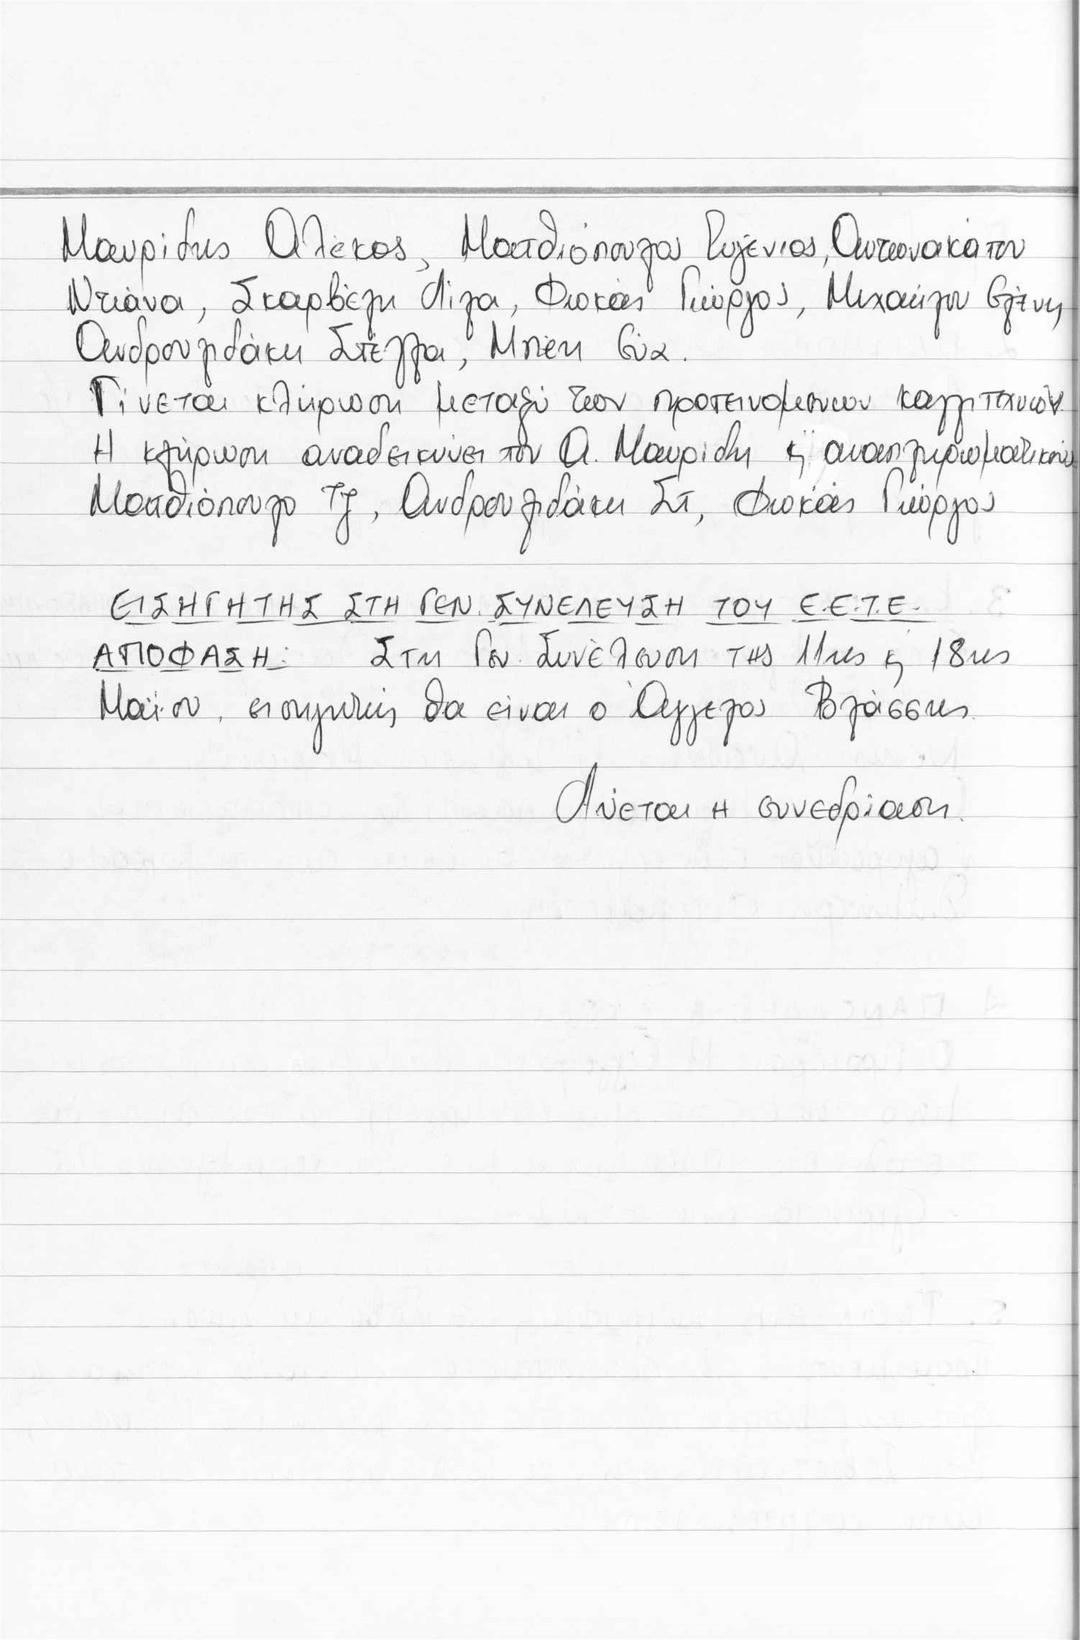 Μαυρίδης Αλέκος, Ματθιόπουλος Ευγένιος, Αντωνακάτου
Ντιάνα, Σκαρβέλη Λίζα, Φωκάς Γιώργος, Μιχαήλου Ελένη
Ανδρουλιδάκη Στέλλα, Μπέη Εύα.
Γίνεται κλήρωση μεταξύ των προτεινομένων καλλιτεχνών.
Η κλήρωση αναδεικνύει τον Α. Μαυρίδη ϗ αναπληρωματικούς
Ματθιόπουλο Ευγ, Ανδρουλιδάκη Στ, Φωκάς Γιώργος
ΕΙΣΗΓΗΤΗΣ ΣΤΗ ΓΕΝ. ΣΥΝΕΛΕΥΣΗ ΤΟΥ Ε.Ε.Τ.Ε.
ΑΠΟΦΑΣΗ: Στη Γεν. Συνέλευση της 11ης ϗ 18ης
Μαΐου, εισηγητής θα είναι ο Άγγελος Βλάσσης.
Λύεται η συνεδρίαση.